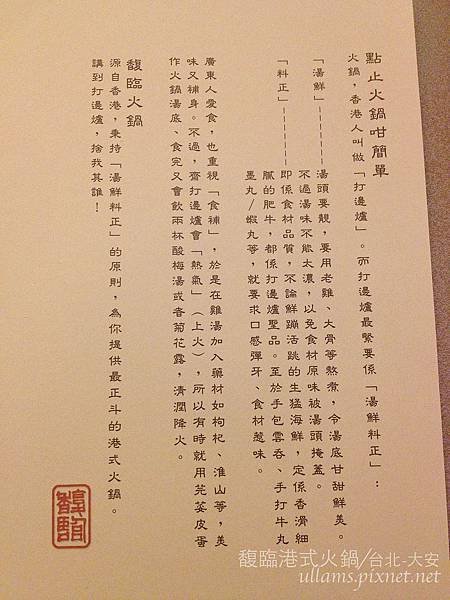 點止火鍋咁簡單
火鍋，香港人叫做「打邊爐」。而打邊爐最緊要係「湯鮮料正」：
「湯鮮」－－－－－湯頭要靚，要用老雞、大骨等熬煮，令湯底甘甜鮮美。
不過湯味不能太濃，以免食材原味被湯頭掩蓋。
「料正」－－－－－即係食材品質，不論鮮蹦活跳的生猛海鮮，定係香滑細
膩的肥牛，都係打邊爐聖品。至於手包雲吞、手打牛丸
墨丸/蝦丸等，就要求口感彈牙、食材惹味。
廣東人愛食，也重視「食補」，於是在雞湯加入藥材如枸杞、淮山等，美
味又補身。不過，齋打邊爐會「熱氣」（上火），所以有時就用芫荽皮蛋
作火鍋湯底、食完又會飲兩杯酸梅湯或香菊花露，清潤降火。
馥臨火鍋
源自香港，秉持「湯鮮料正」的原則，為你提供最正斗的港式火鍋。
講到打邊爐，捨我其誰！
馥臨
馥臨港式火鍋/台北-大安
ullams.pixnet.net